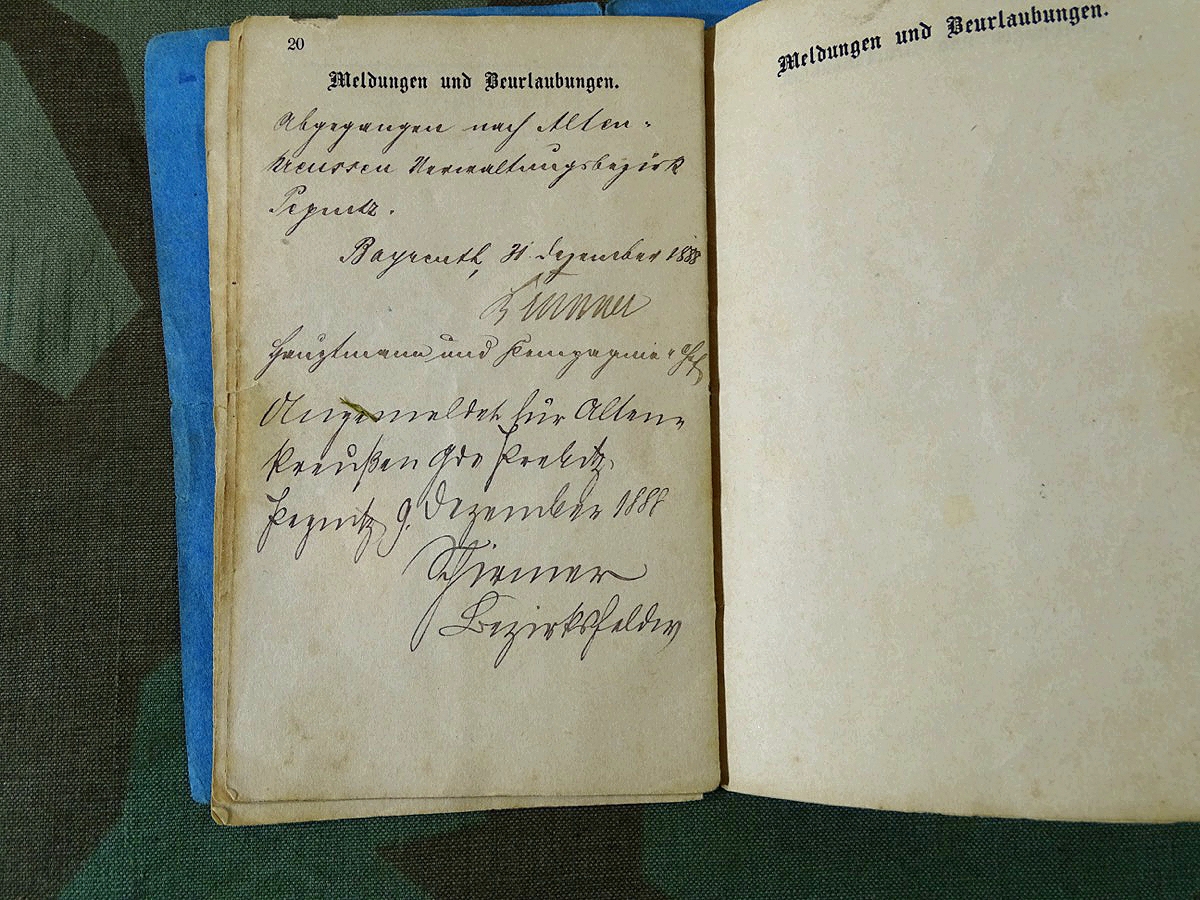 20
Meldungen und Beurlaubungen.
Abgegangen nach Alten-
kreussen Verwaltungsbezirk
Pegnitz.
Bayreuth, 31. Dezember 1888
Hauptmann und Kompagnie-Chef
Angemeldet für Alten-
kreußen Gde Prebitz.
Pegnitz 9. Dezember 1888
Schirmer
Bezirksfeldw
Meldungen und Beurlaubungen.